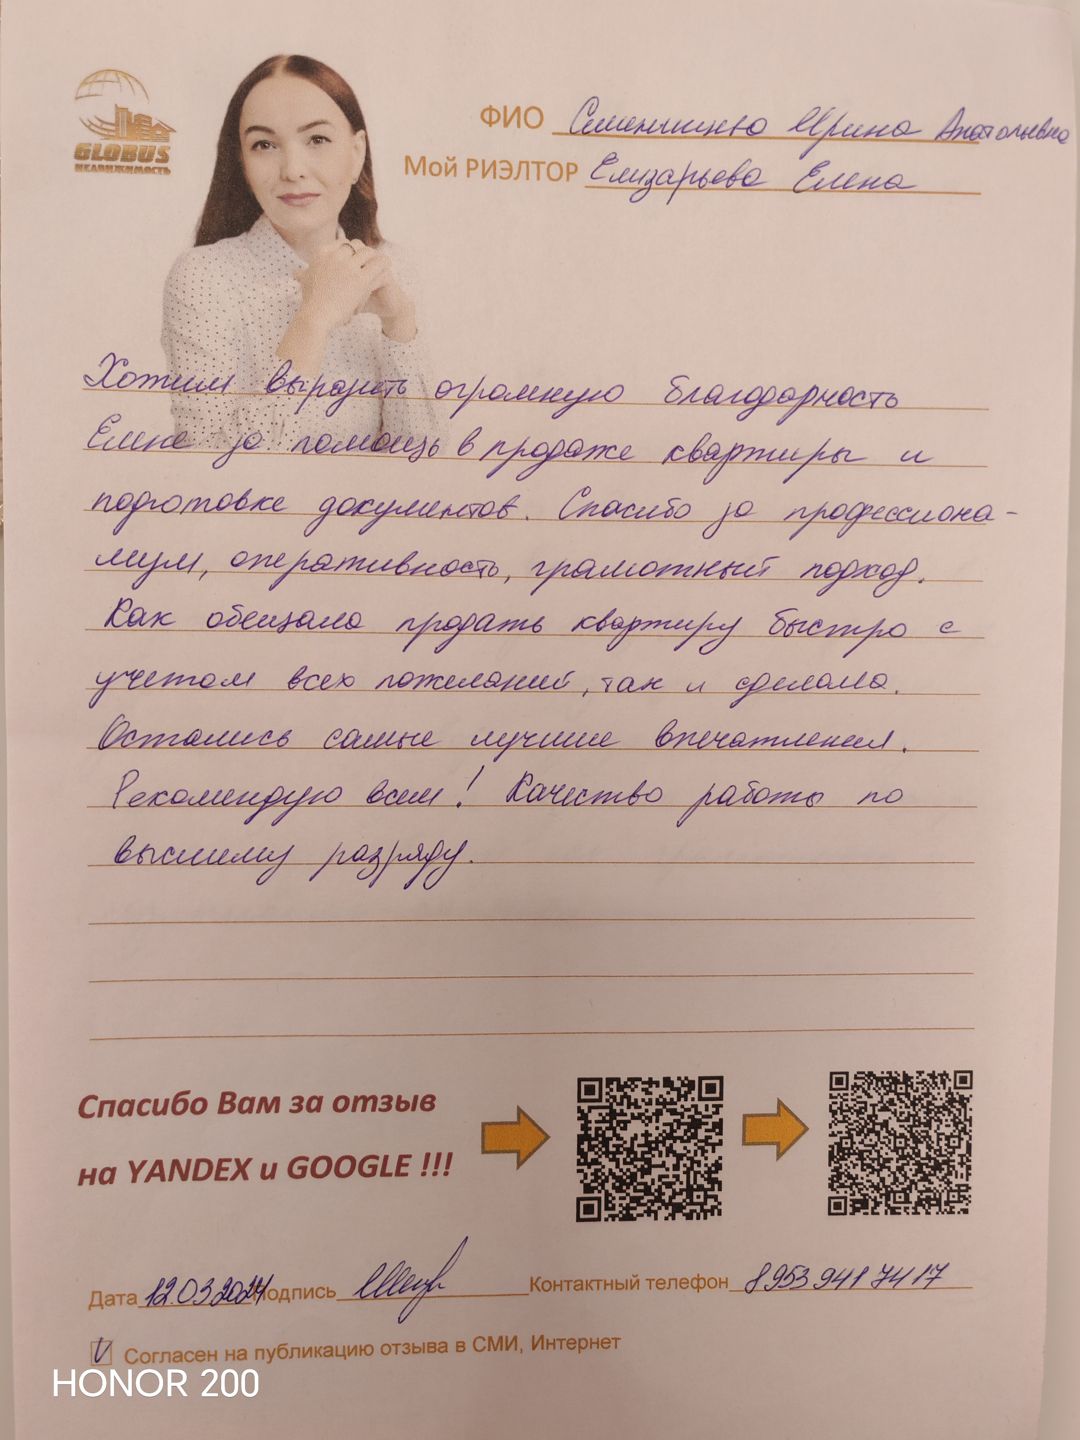 GLOBUS
НЕДВИЖИМОСТЬ
ФИО Ирина Анатольевна
Мой РИЭЛТОР Елизарьева Елена
Хотим выразить огромную благодарность
Елене за помощь в продаже квартиры и
подготовке документов. Спасибо за профессиона-
лизм, оперативность, грамотный подход.
Как обещала продать квартиру быстро с
учетом всех пожеланий, так и сделала.
Остались самые лучшие впечатления.
Рекомендую всем! Качество работы по
высшему разряду.
Спасибо Вам за отзыв
на YANDEX и GOOGLE !!!
Дата 12.03.2024 Подпись Контактный телефон 8 953 941 74 17
V Согласен на публикацию отзыва в СМИ, Интернет
HONOR 200